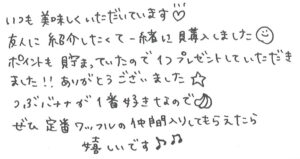 いつも美味しくいただいています♡
友人に紹介したくて一緒に購入しました☺
ポイントも貯まっていたので1つプレゼントしていただき
ました!!ありがとうございました☆
つぶバナナが1番好きなので🍌
ぜひ定番ワッフルの仲間入りしてもらえたら
嬉しいです♪♪